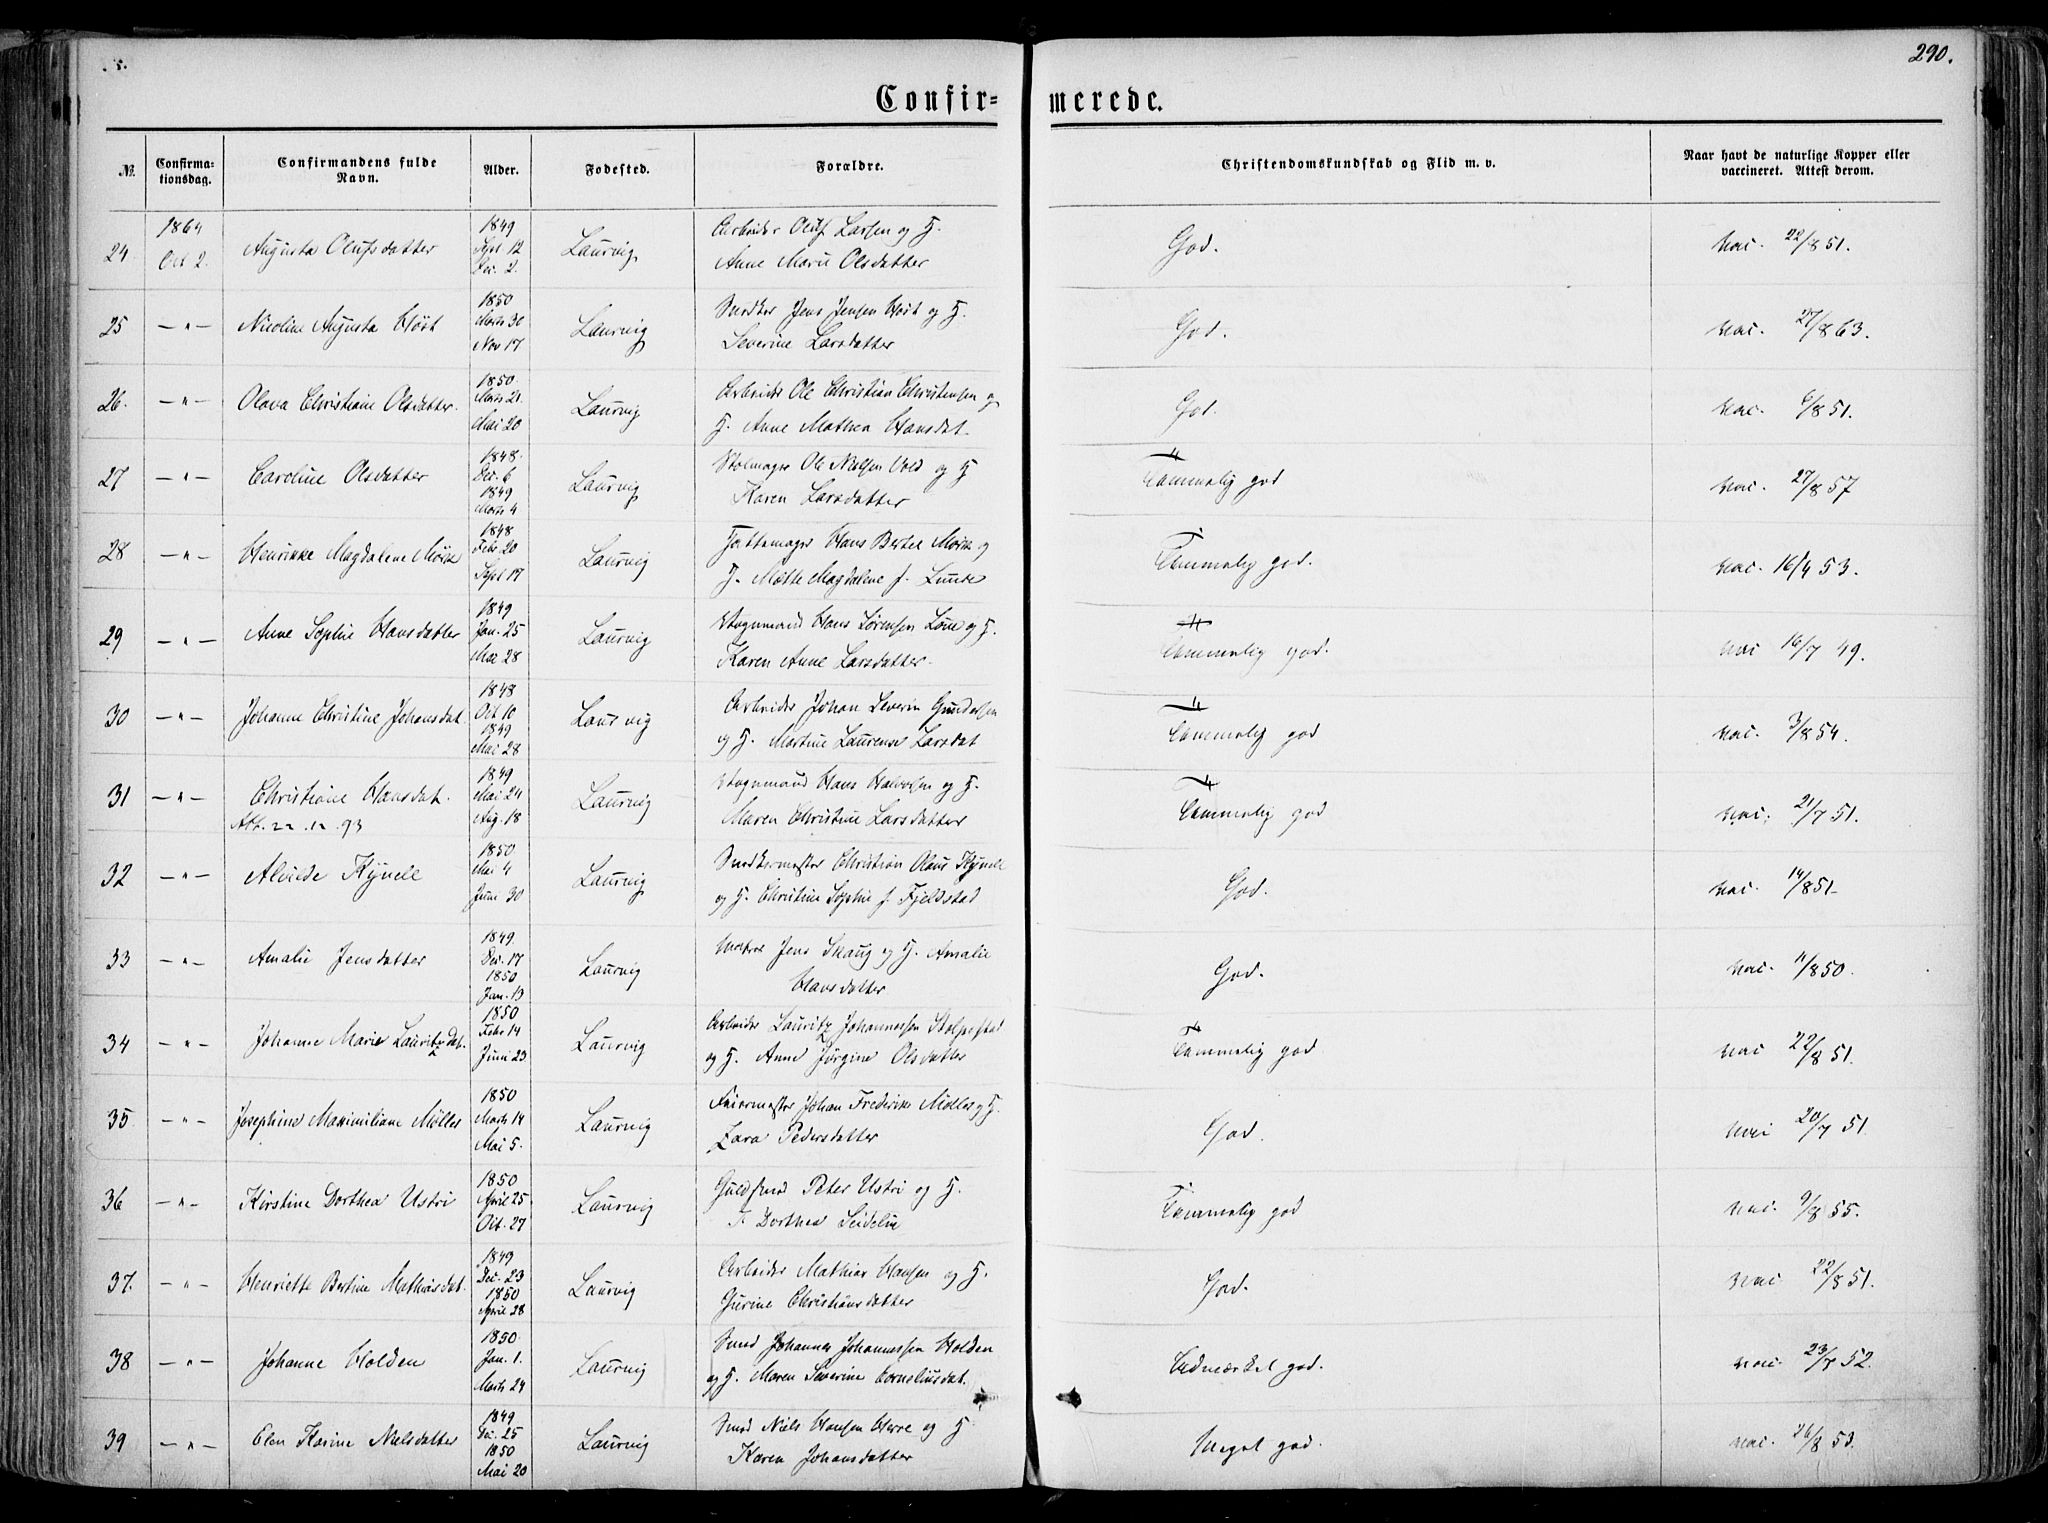 290.
Confir- merede.
№. Confirma- Confirmandens fulde Alder. Fødested. Forældre. Christendomskundskab og Flid m. v. Naar havt de naturlige Kopper eller
tionsdag. Navn. vaccineret. Attest derom.
1864 1849 Arbeider Oluf Larsen og H.
24 Oct 2. Augusta Olufsdatter Sept 12 Laurvig God. vac. 22/8 51.
Dec. 2. Anne Marie Olsdatter
1850 Snedker Jens Jensen Høst og H.
25 -"- Nicoline Augusta Høst Marts 30 Laurvig God. vac. 27/8 63.
Nov 17 Severine Larsdatter
1850. Arbeider Ole Christian Christensen og
26. -"- Olava Christiane Olsdatter. Marts 21 Laurvig God. vac. 6/8 51.
Mai 20 H. Anne Mathea Hansdat.
1848. Stolmager Ole Nielsen Vold og H
27 -"- Caroline Olsdatter Dec. 6 Laurvig Temmelig god vac. 27/8 57
1849
Marts 4 Karen Larsdatter
1848 Hattemager Hans Bertel Mørk og
28 -"- Henrikke Magdalene Mørk Febr. 20 Laurvig Temmelig god. vac. 16/4 53.
Sept 17 H. Mette Magdalene f. Lunde
1849 Vognmand Hans Sørensen Løve og H.
29 -"- Anne Sophie Hansdatter Jan. 25 Laurvig Temmelig god. vac 16/7 49.
Mai 28 Karen Anne Larsdatter.
1848 Arbeider Johan Severin Gundersen
30 -"- Johanne Christine Johansdat. Oct 10 Laurvig Temmelig god vac. 3/8 54.
1849
Mai 28 og H. Martine Laurense Larsdat
1849 Vognmand Hans Halvorsen og H.
31 -"- Christiane Hansdat. Mai 24 Laurvig Temmelig god vac. 21/7 51.
Att. 22.12.93 Aug. 18 Maren Christine Larsdatter
1850 Snedkermester Christian Olaus Kynell
32 -"- Alvilde Kynell Mai 4 Laurvig God. vac. 14/8 51
Juni 30 og H. Christine Sophie f. Fjeldstad
1849. Jens Skaug og H. Amalie
33 -"- Amalie Jensdatter Dec. 17 Laurvig God. vac. 11/8 50.
1850
Jan. 13 Hansdatter
1850 Arbeider Lauritz Johannesen Stolpestad
34 -"- Johanne Marie Lauritzdat. Febr 14 Laurvig Temmelig god vac 22/8 51.
Juni 23 og H. Anne Jørgine Olsdatter
1850 Feiermester Johan Frederik Møller og H.
35 -"- Josephine Maximiliane Møller Marts 14 Laurvig God. vac 20/7 51
Mai 5. Zara Pedersdatter
1850 Guldsmed Peter Ustri og H.
36 -"- Kirstine Dorthea Ustri April 25 Laurvig Temmelig god vac. 9/8 55.
Oct. 27 F. Dorthea Seidelin
1849 Arbeider Mathias Hansen og H.
37. -"- Henriette Bertine Mathiasdat. Dec. 23 Laurvig God. vac 22/8 51.
1850
April 28 Gurine Christiansdatter
1850 Smed Johannes Johannessen Holden
38 -"- Johanne Holden Jan. 1. Laurvig Udmærket god. vac. 23/7 52.
Marts 24 og H. Maren Severine Corneliusdat.
1849 Smed Niels Hansen Herre og H
39 -"- Elen Karine Nielsdatter Dec. 25 Laurvig Meget god. vac. 26/8 53.
1850
Mai 20 Karen Johansdatter